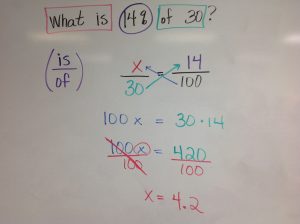 What is 14% of 30?
(is/of) x/30 = 14/100
100x = 30·14
100x/100 = 420/100
x = 4.2